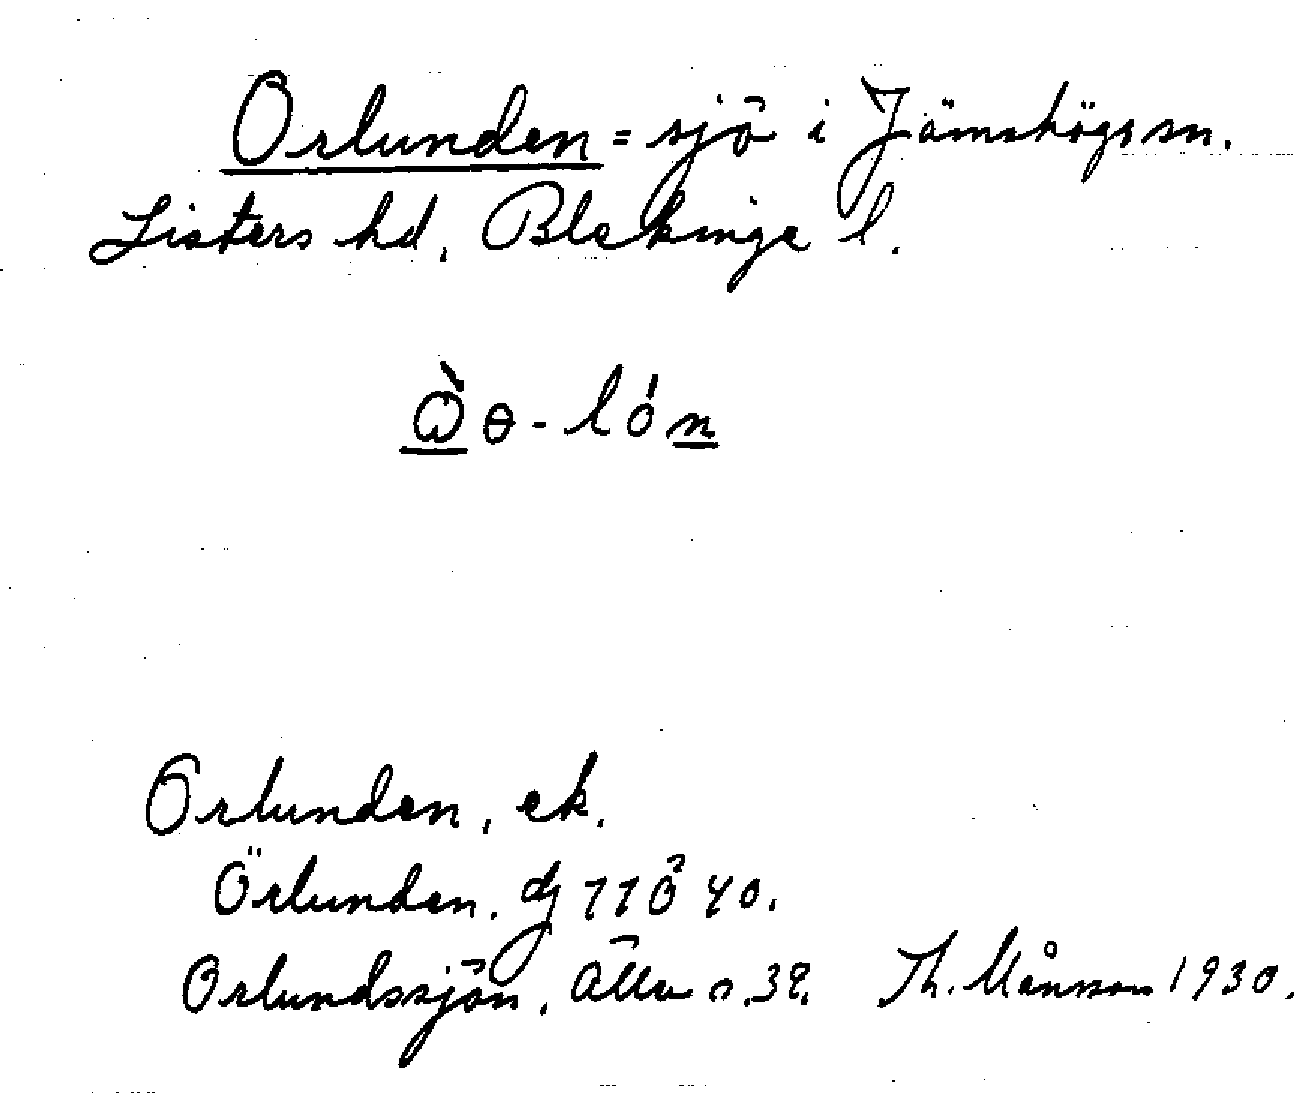 Orlunden = sjö i Jämshögs sn.
Listers hd, Blekinge l.
Orlunden, ek.
Örlunden. dj 11 ö 40.
Orlundssjön, Älle s. 38. Th. Månsson 1930.